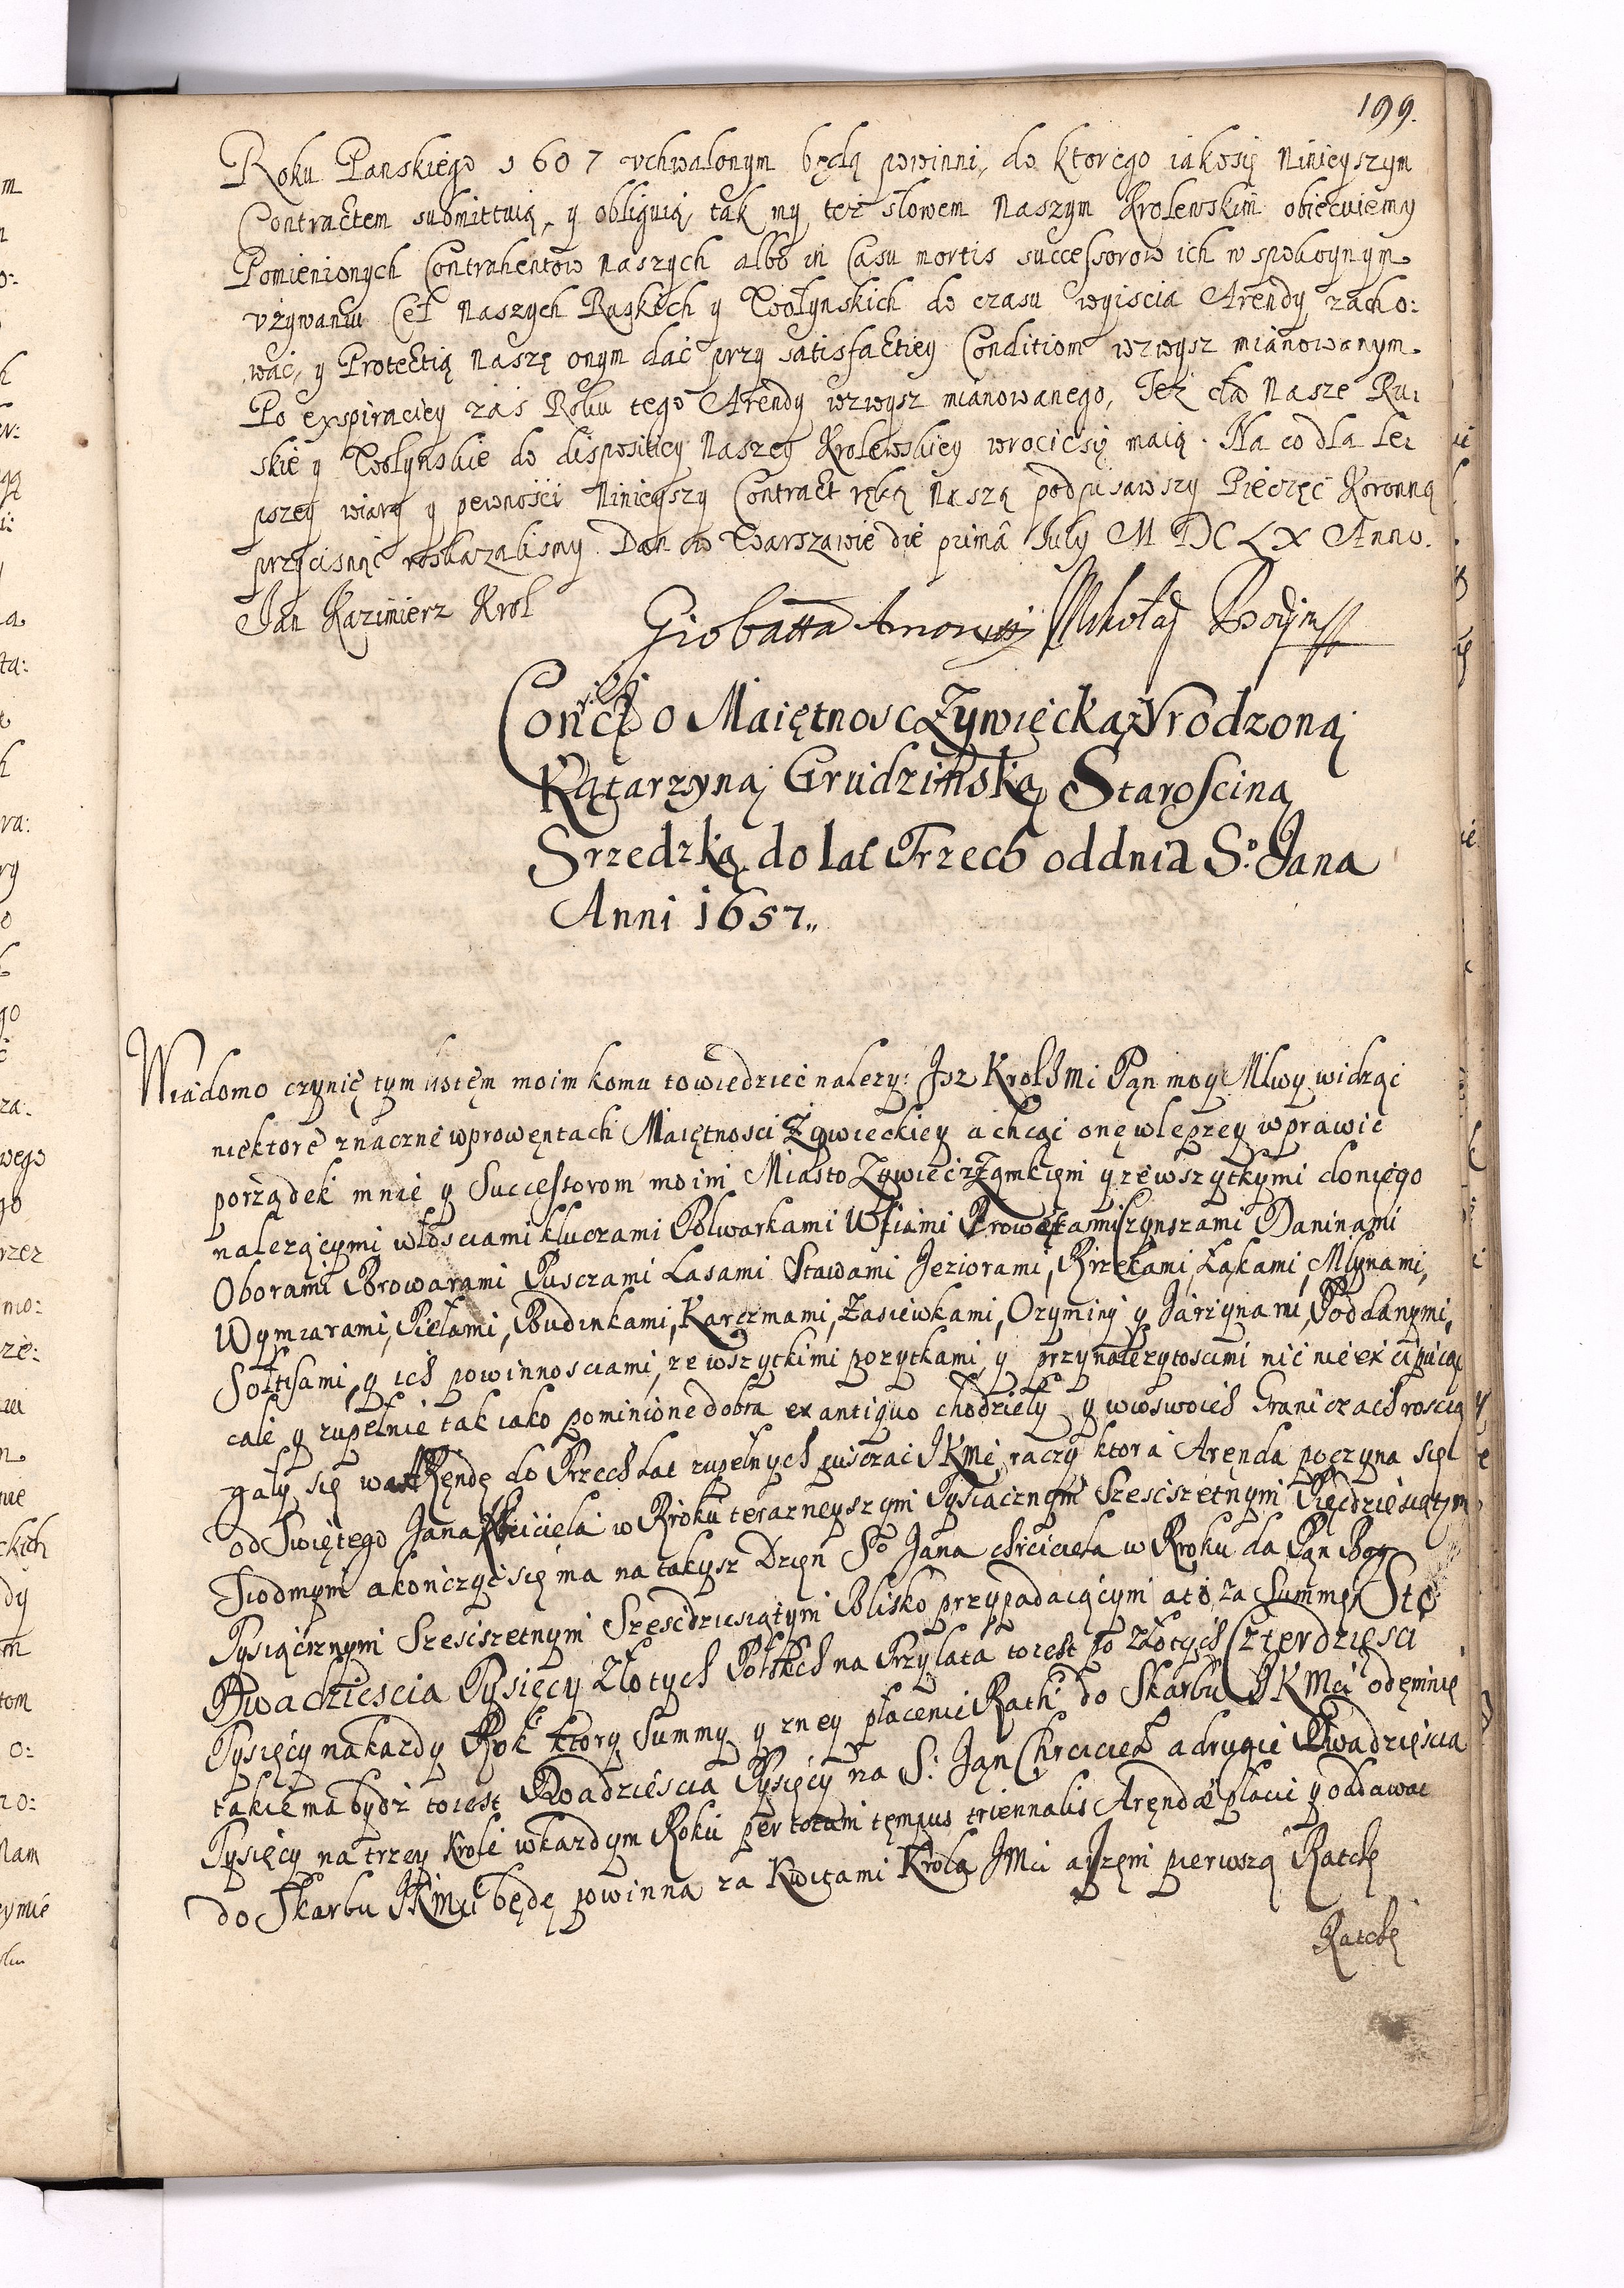 199.
Roku Panskiego 1607 vchwalonym będą powinni, do ktorego iakosię Ninieyszym
Contractem submittuią, y obliguią, tak my też słowem Naszym Krolewskim obiecuiemy
Pomienionych Contrahentow naszych albo in Casu mortis successorow ich w spokoynym
vżywaniu Ceł Naszych Ruskich y Wołynskich do czasu wyiscia Arendy zacho:
wać, y Protectią Naszę onym dać przy satisfactiey Conditiom wzwysz mianowanym.
Po expiraciey zaś Roku tego Arendy wzwysz mianowanego, Też cła Nasze Ru:
skie y Wołynskie do disposiciey Naszey Krolewskiey wrocicsię maią. Na co dla le:
pszey wiary y pewności Ninieyszy Contract ręką Naszą podpisawszy Pieczęć Koronną
przycisnąć roskazalismy. Dan w Warszawie die primâ July M DC LX Anno.
Jan Kazimierz Krol
Giobatta Mikołaj
o Maiętnosc Zywiecką z Vrodzoną
Katarzyną Grudzinską Staroscina
Srzedzką do lat Trzech oddnia S.º Jana
Anni 1657.
Wiadomo czynię tym listęm moim komu towiedziec nalezy: Jsz Krol Jmi Pan moy Mlwy widząc
niektore znaczne wprowentach Maiętnosci Zywieckiey achcąc onę wlepszey wprawic
porządek mnie y Successorom moim Miasto Zywiec z Zamkięm yzewszytkymi doniego
nalezącymi włosciami kluczami Folwarkami Wsiami Prowętami Czynszami Daninami
Oborami Browarami Pusczami Lasami Stawami Jeziorami, Rzekami, Łąkami, Młynami,
Wymiarami, Piełami, Budinkami, Karczmami, Zasiewkami, Ozyminy y Jarzynami, Poddanymi,
Sołtisami, y ich powinnosciami, ze wszytkimi pozytkami, y przynalezytoscimi nic nie excipuiąc
cale y zupełnie tak iako pominione dobra ex antiquo chodzieły y wswoich Graniczach roscią
gały się w Arendę do Trzech Lat zupełnych pusczac JKMc raczy ktora Arenda poczyna się
od Swiętego Jana Krciciela w Roku terazneyszym Tysiącznym Szescszetnym Pięcdziesiątym
Siodmym akonczyc się ma na takysz Dzien Sº Jana chrciciela w Roku da Pan Bog
Tysiącznym Szescszetnym Szescdziesiątym Blisko przypadaiącym ato za Summę Sto
Dwadziescia Tysięcy Złotych Polskich na Trzylata toiest po złotych Czterdziesci
Tysięcy nakazdy Rok ktory Summy y zney płacenie Rath do Skarbu JKMci odemnie
takie ma bydz toiest Dwadziescia Tysięcy na S: Jan Chrciciel adrugie Dwadziescia
Tysięcy na trzey Krole wkazdym Roku per totum tempus triennalis Arendæ płacic y oddawac
do Skarbu JKMci będę powinna za Kwitami Krola JMci pierwszą Ratchę
Ratchę